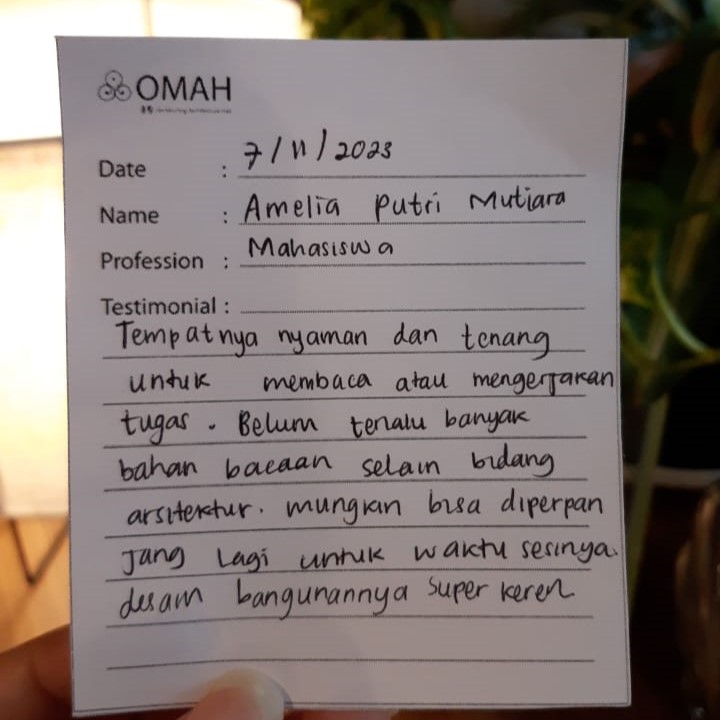 OMAH
Date : 7/11/2023
Name : Amelia Putri Mutiara
Profession : Mahasiswa
Testimonial :
Tempatnya nyaman dan tenang
untuk membaca atau mengerjakan
tugas. Belum terlalu banyak
bahan bacaan selain bidang
arsitektur. mungkin bisa diperpan
jang lagi untuk waktu sesinya.
desain bangunannya super keren